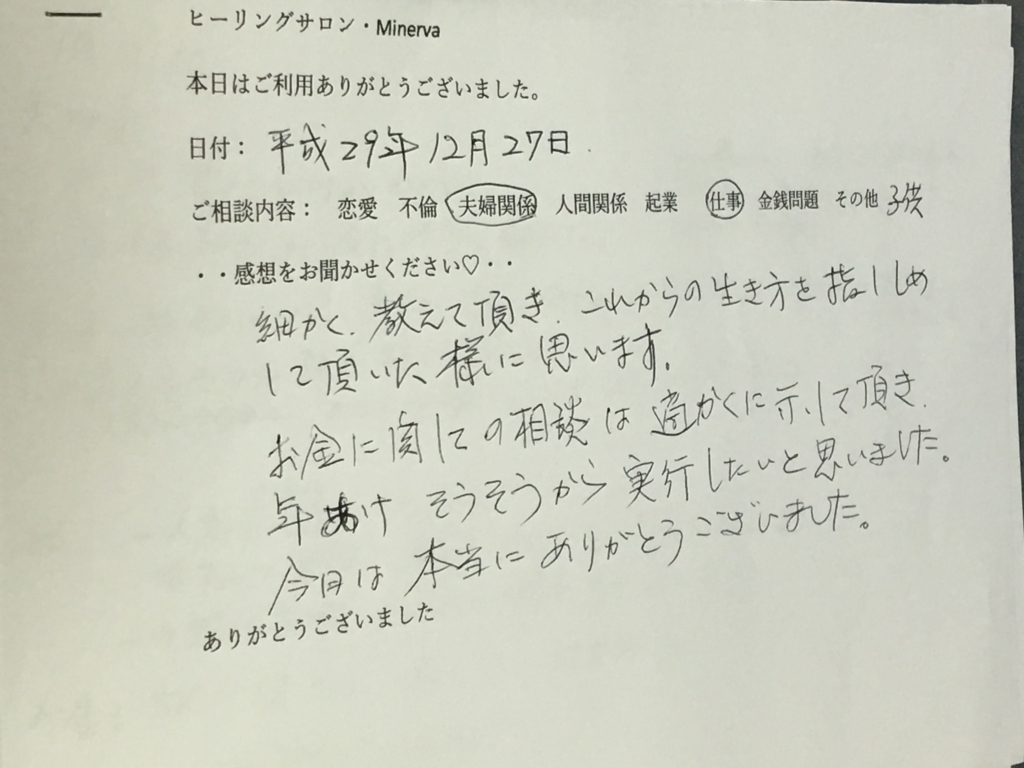 ヒーリングサロン・Minerva
本日はご利用ありがとうございました。
日付: 平成29年12月27日
ご相談内容: 恋愛 不倫 夫婦関係 人間関係 起業 仕事 金銭問題 その他 子供
・・感想をお聞かせください♡・・
細かく、教えて頂き、これからの生き方を指ししめ
して頂いた様に思います。
お金に関しての相談は適かくに示して頂き、
年あけ そうそうから実行したいと思いました。
今日は本当にありがとうございました。
ありがとうございました